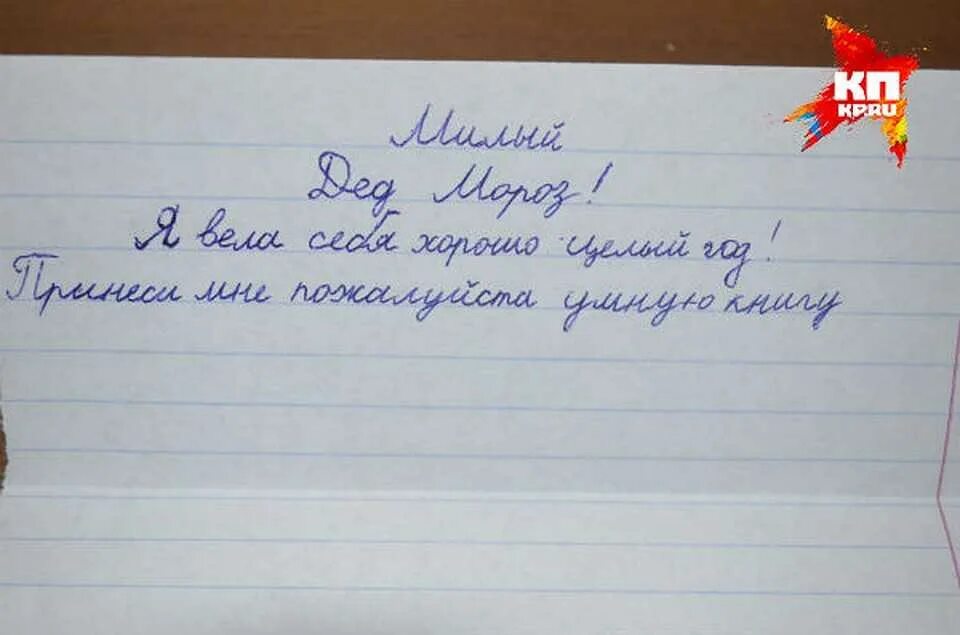 КП
KP.RU
Милый
Дед Мороз!
Я вела себя хорошо целый год!
Принеси мне пожалуйста умную книгу